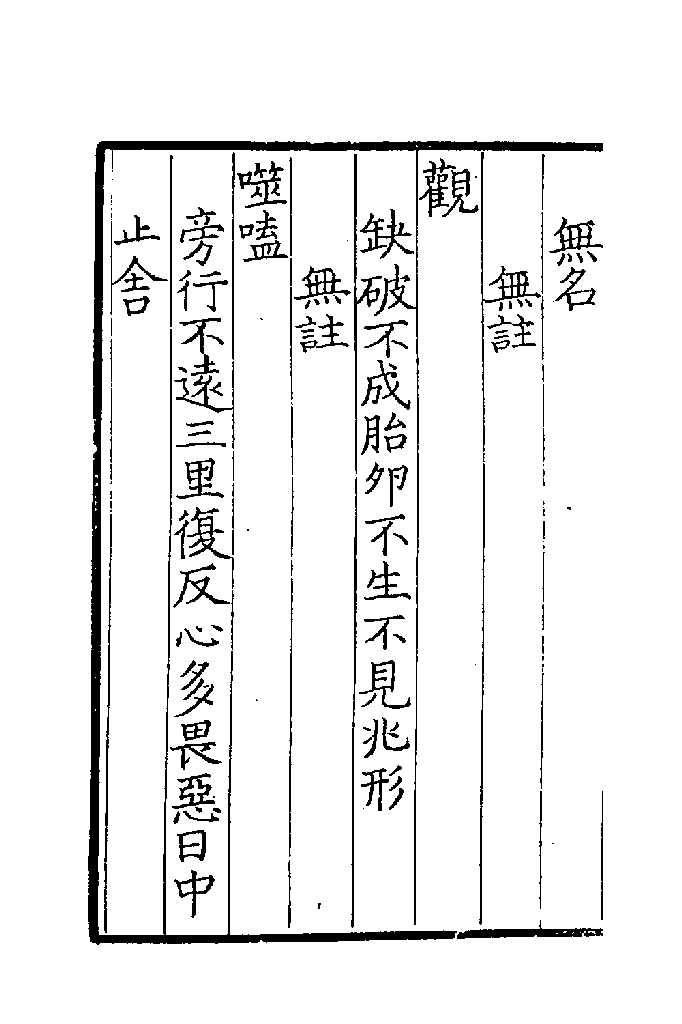 無名
無註
觀
缺破不成胎卵不生不見兆形
無註
噬嗑
旁行不遠三里復反心多畏惡日中
止舍